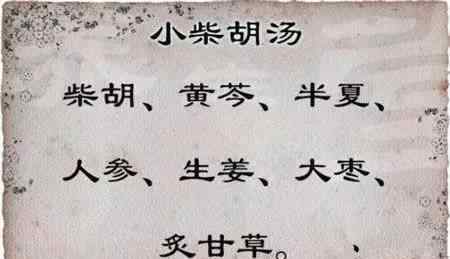 小柴胡汤
柴胡、黄芩、半夏、
人参、生姜、大枣、
炙甘草。、